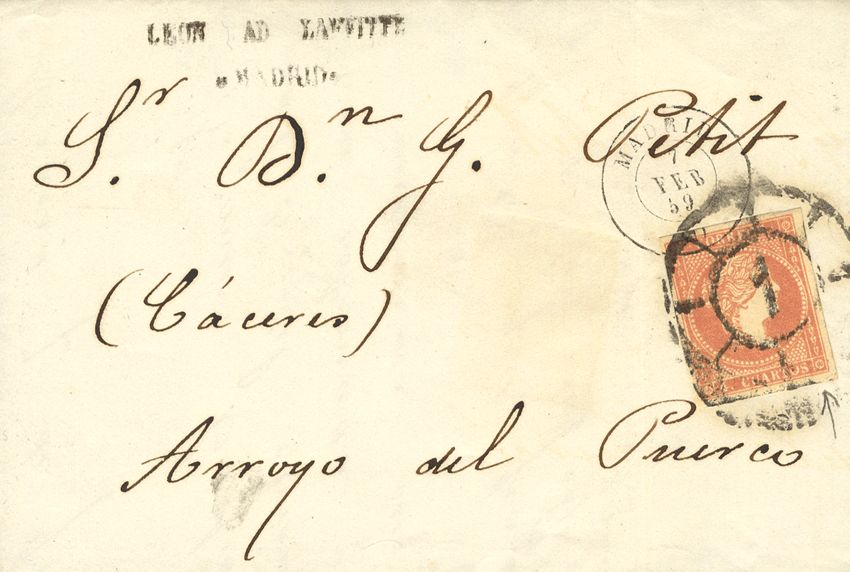 LEON AD LAFFITTE
MADRID
Sr. Dn. G. Petit
MADRID
7
FEB
59
(Cáceres)
1
CUARTOS
Arroyo del Puerco